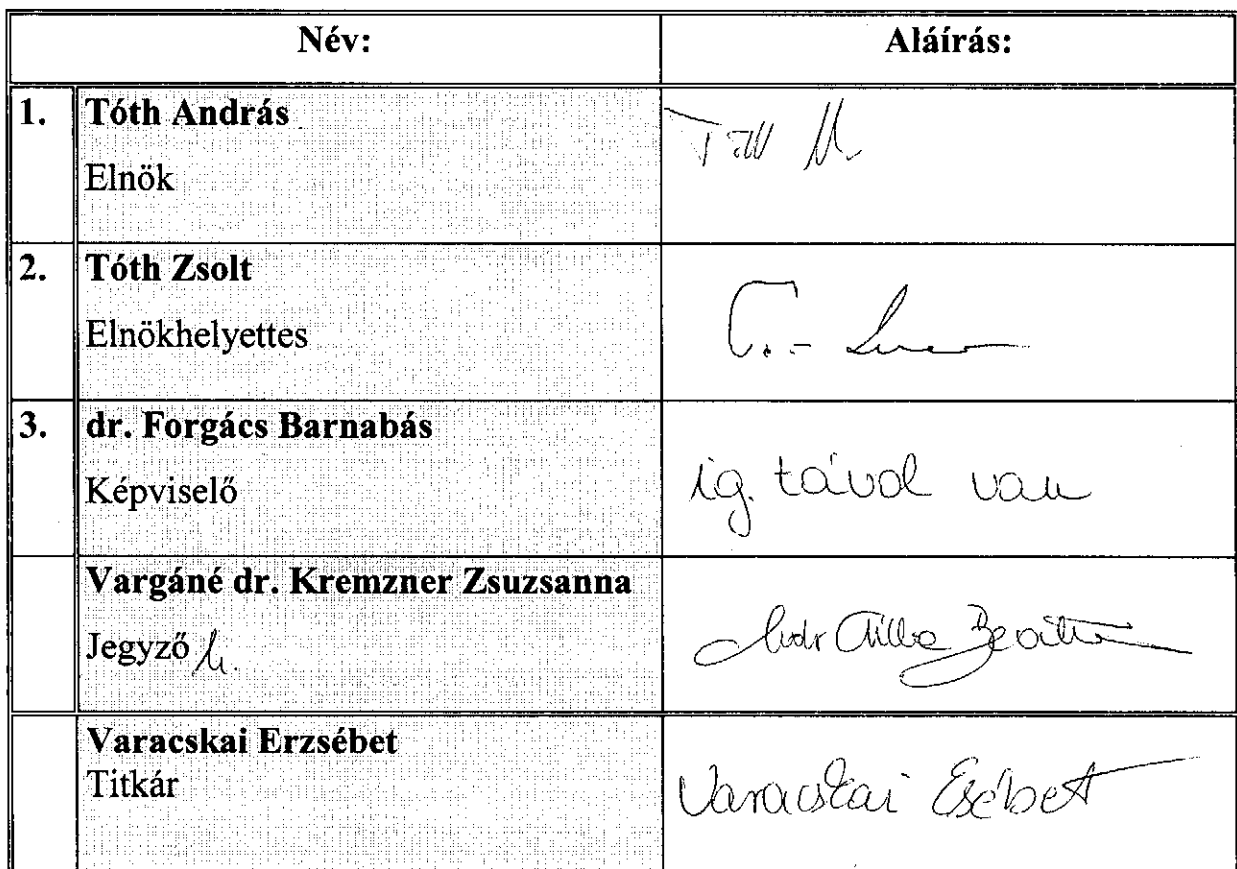 Név: Aláírás:
1. Tóth András
Elnök
2. Tóth Zsolt
Elnökhelyettes
3. dr. Forgács Barnabás
Képviselő
ig. távol van
Vargáné dr. Kremzner Zsuzsanna
Jegyző h.
Varacskai Erzsébet
Titkár
Varacskai Erzsébet